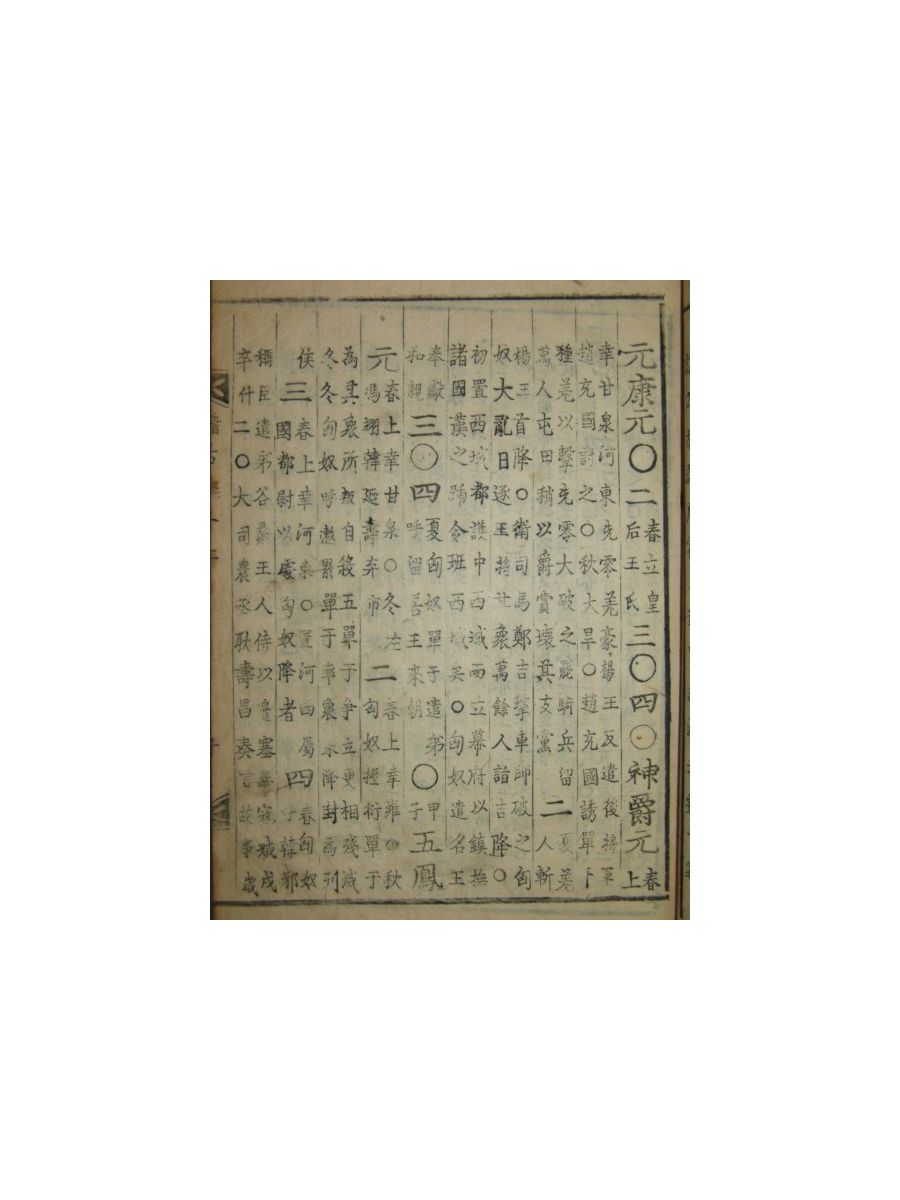 元康元〇二春立皇后王氏三〇四〇神爵元春上
幸甘泉河東先零羌豪楊王反遣後將軍
趙充國討之〇秋大旱〇趙充國誘單卜
種羌以擊先零大破之罷騎兵留
萬人屯田稍以爵賞壞其支黨二夏羌人斬
楊三首降〇衛司馬鄭吉擊車師破之匈
奴大亂日逐王將廿衆萬餘人詣吉降〇
初置西域都護中西域而立幕府以鎮撫
諸國漢之號令班西域矣〇匈奴遣名王
奉獻和親三〇四夏匈奴單于遣弟呼留若王來朝〇甲子五鳳
元春上幸甘泉〇冬左馮翊韓延壽弃市二春上幸雍〇秋匈奴握衍單于
為其衆所叛自殺五單于爭立更相殘滅
冬冬匈奴呼遬累單于率衆來降封為列
侯三春上幸河東〇置河西屬國都尉以處匈奴降者四春匈奴于韓邪
稱臣遣弟谷蠡王人侍以邊塞無寇減戍
卒什二〇大司農丞耿壽昌奏言故事歲